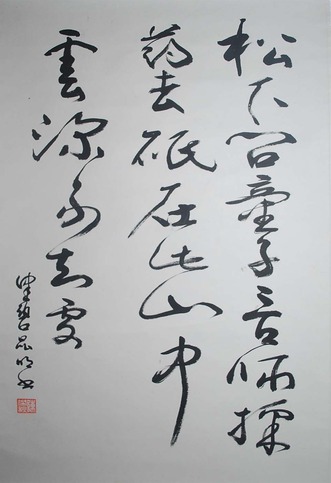 松下问童子言师採
药去祇在此山中
雲深不知处